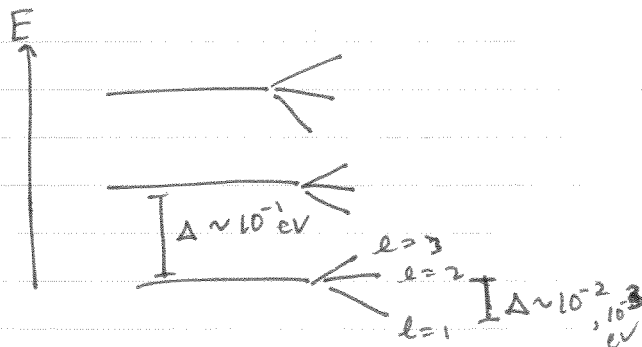 E
Δ ~ 10⁻¹ eV
l=3
l=2
l=1
Δ ~ 10⁻², 10⁻³ eV